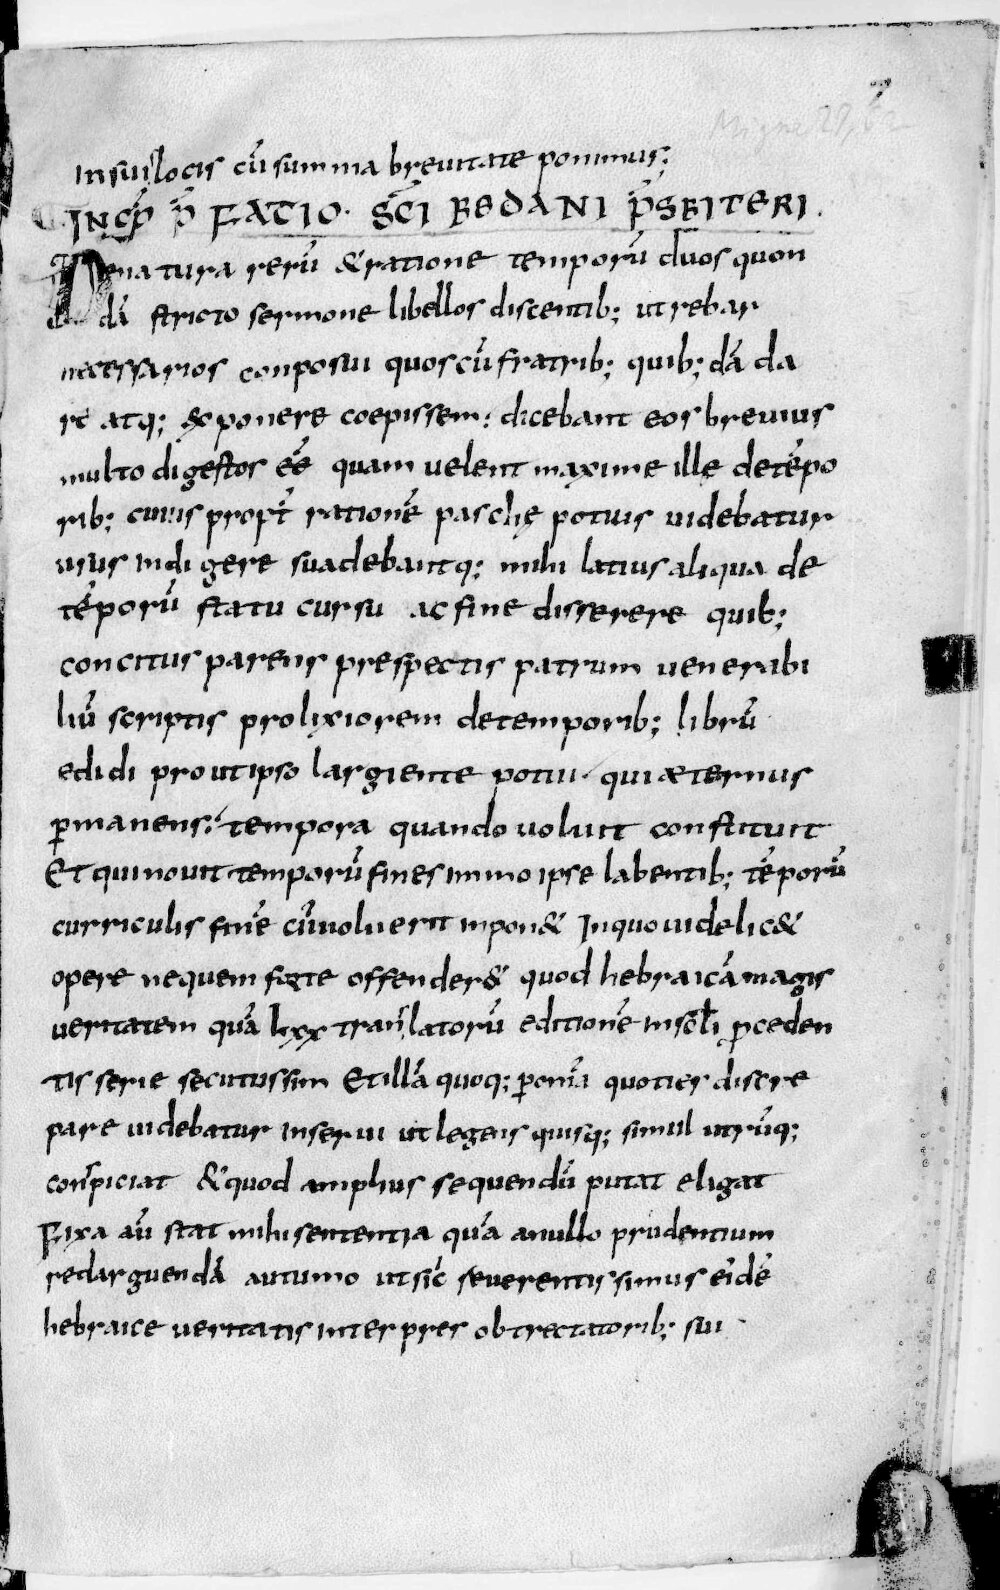 7
Migne 29,
In suis locis cū summa breuitate ponimus;
INCP̄ P̄FATIO · S̄C̄I BEDANI P̄SBITERI.
De natura rerū & ratione temporū duos quon
dā stricto sermone libellos discentib; ut rebar
necessarios conposui quos cū fratrib; quib; dā da
re atq; exponere coepissem; dicebant eos breuius
multo digestos ēē quam uelent maxime ille de tēpo
rib; cuius propt̄ rationē paschę potius uidebatur
usus indigere suadebantq; mihi latius aliqua de
tēporū statu cursu ac fine disserere quib;
concitus parens prespectis patrum uenerabi
liū scriptis prolixiorem de temporib; librū
edidi prout ipso largiente potui · qui æternus
p̄manens; tempora quando voluit constituit
Et qui nouit temporū fines immo ipse labentib; tēporū
curriculis finē cū uoluerit inpon& In quo uidelic&
opere nequem forte offender& quod hebraicā magis
ueritatem quā lxx translatorū editionē in sc̄li p̄ceden
tis serie secutus sim Et illā quoq; p̄ omīa quoties discre
pare uidebatur inserui ut legens quisq; simul utrūq;
conspiciat & quod amplius sequendū putat eligat
Fixa aū stat mihi sententia quā a nullo prudentium
redarguendā autumo ut sic reuerentissimus eidē
hebraice ueritatis interpres obtrectatorib; sui ·